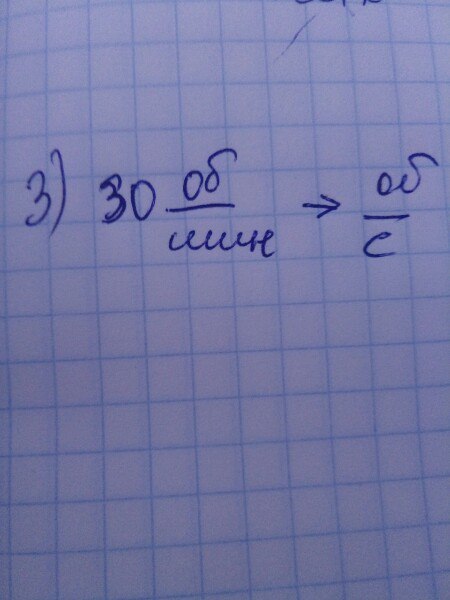 3) 30 об/мин → об/с